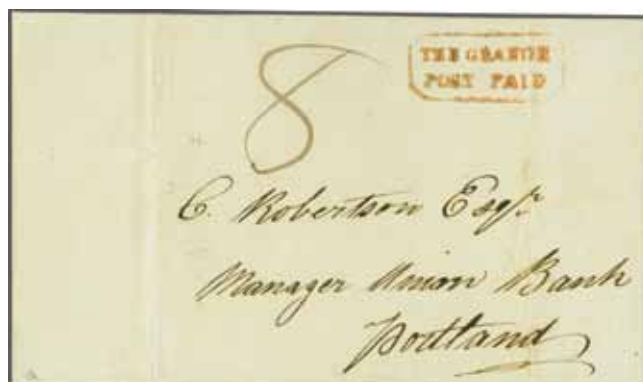 THE GRANGE
POST PAID
8
C. Robertson Esqr
Manager Union Bank
Portland